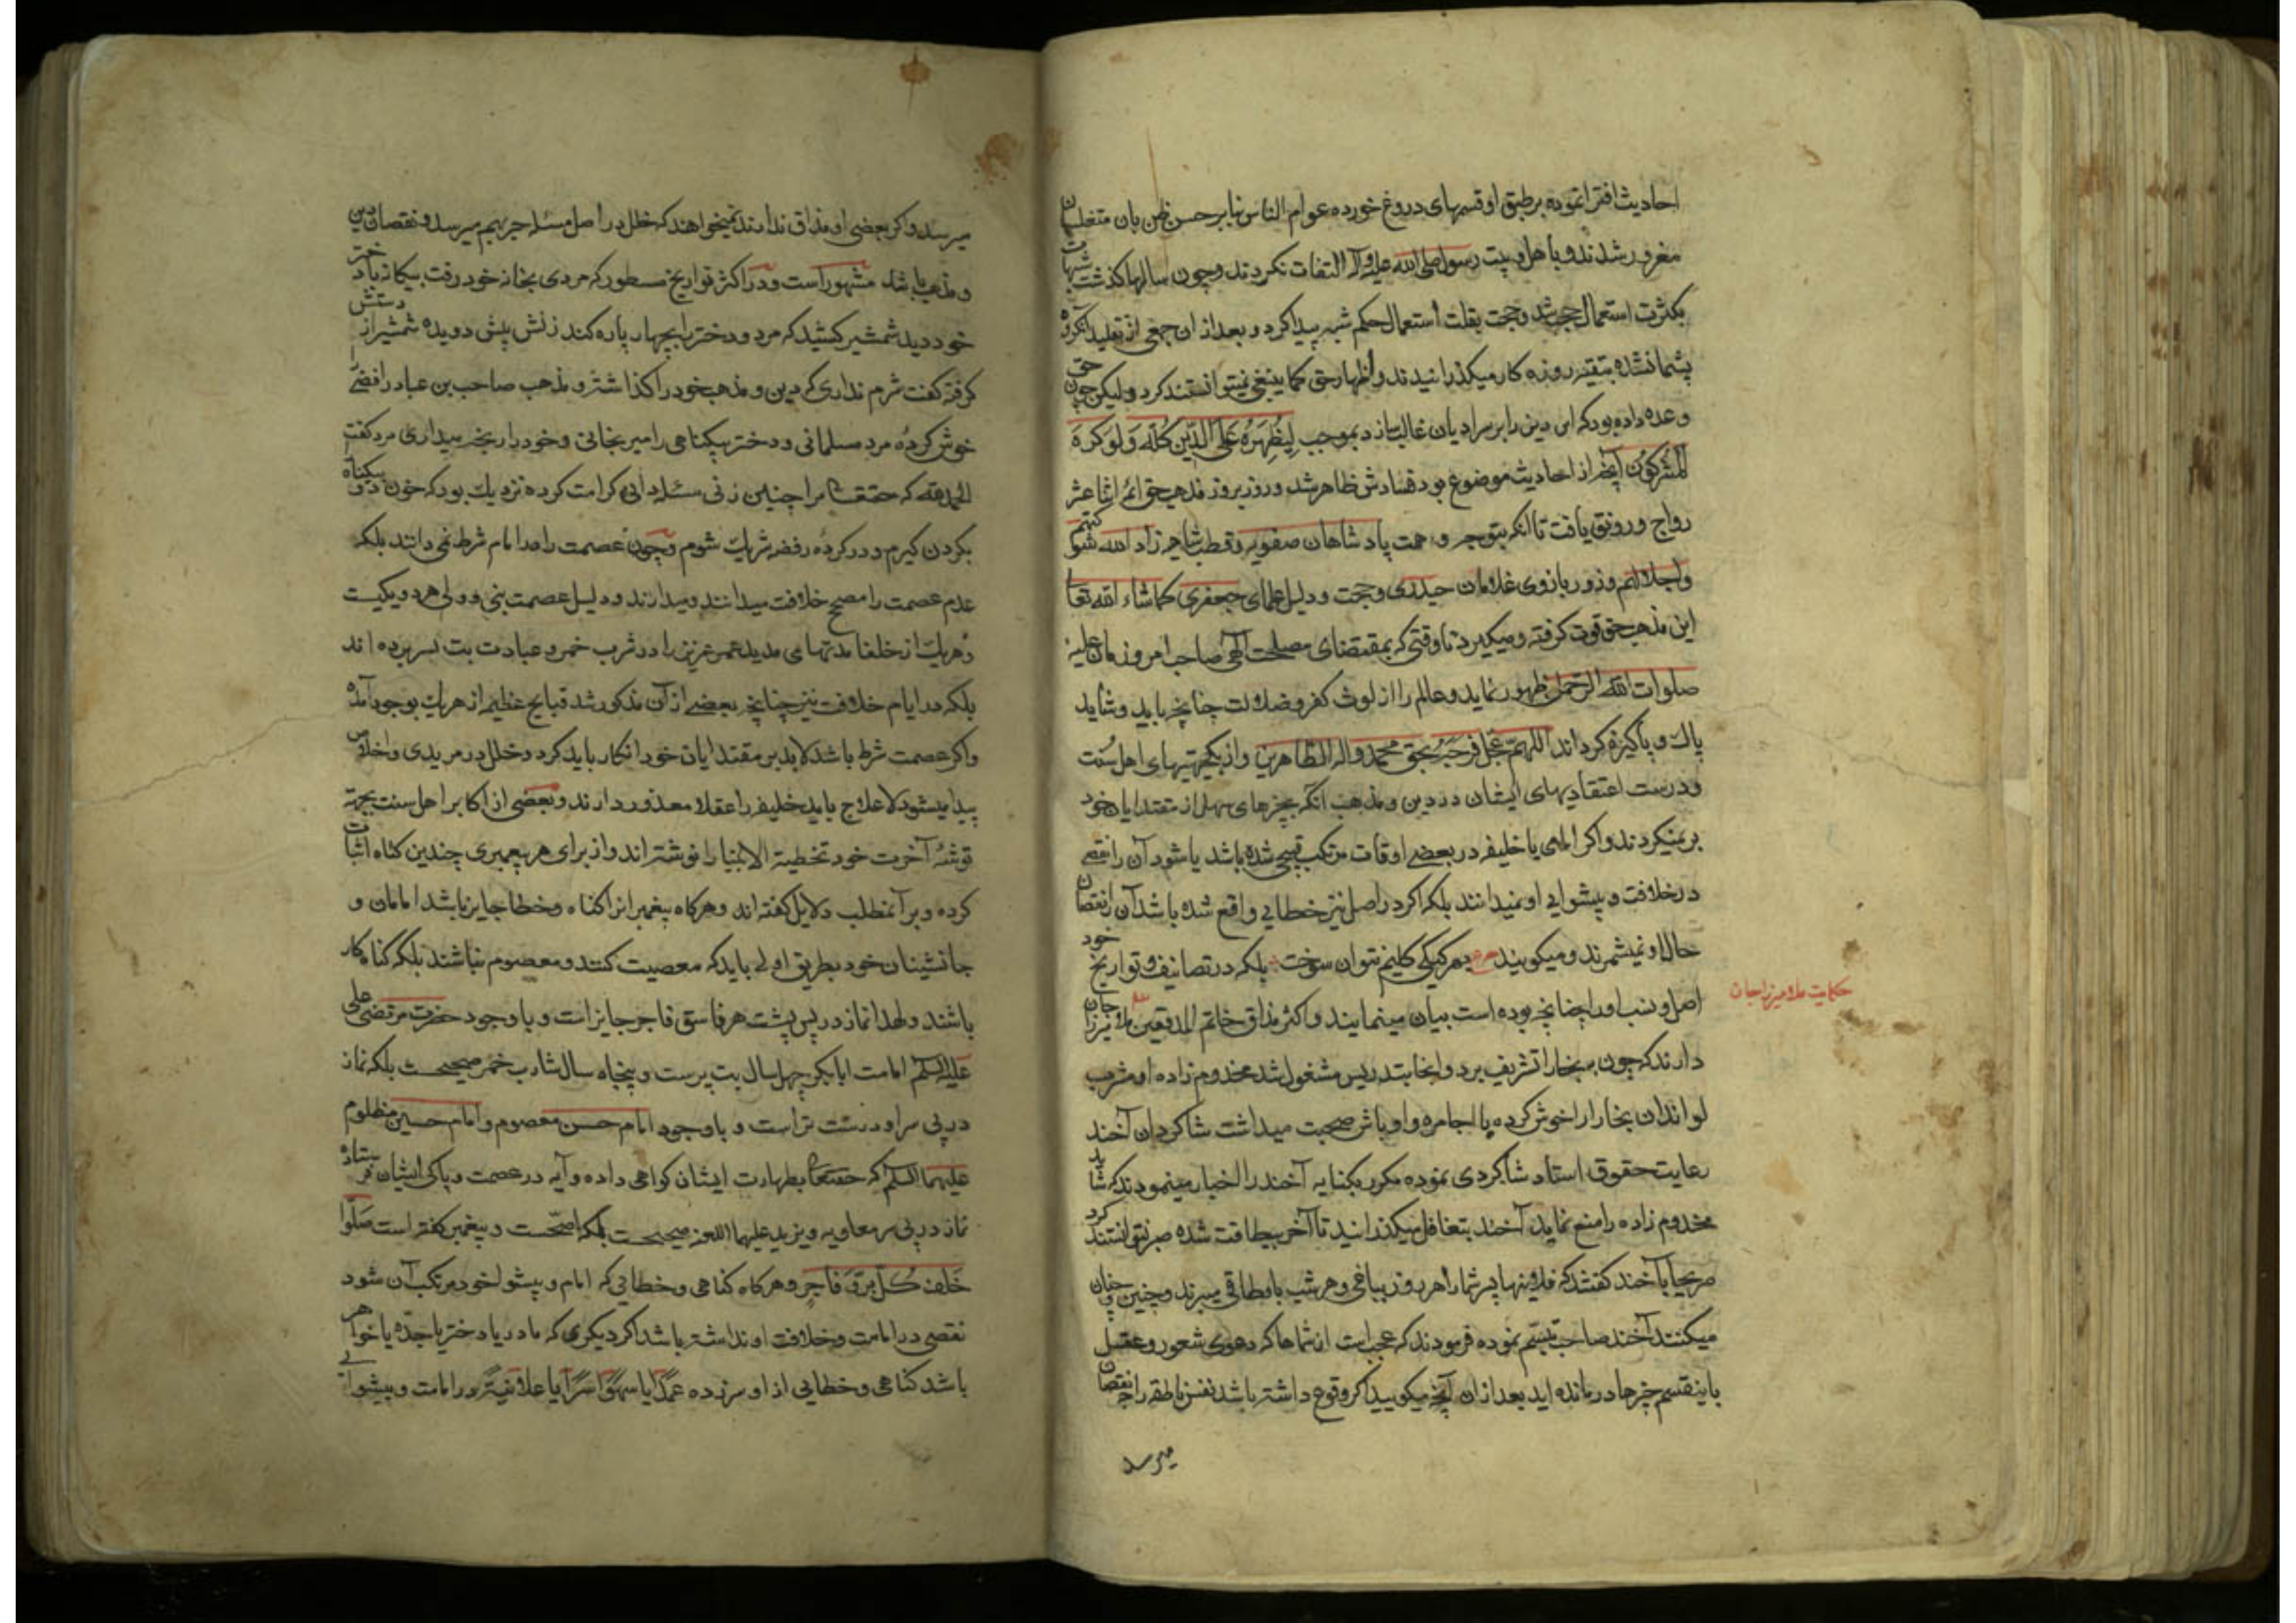 احادیث افترا نموده بر طبق او قسمهای دروغ خورده عوام الناس بنا بر حسن ظن بان متغلبان
مغرور شدند و با اهل بیت رسول صلی الله علیه و آله التفات نکردند و چون سالها کذشت شبهات
بکثرت استعمال حجت شد و حجت بقلت استعمال حکم شبهه پیدا کرد و بعد از ان جمعی از تقلید آنکروه
پشیمان شده بتقیه روزه کار میکذرانیدند و اظهار حق کما ینبغی نمیتوانستند کرد ولیکن چون حق
وعده داده بود که این دین را بر سر ادیان غالب سازد بموجب لِیُظْهِرَهُ عَلَی الدّینِ کُلِّه وَلَو کَرِهَ
الْمُشْرِکُون آنچه از احادیث موضوع بود فسادش ظاهر شد و روز بروز مذهب حق ائمهٔ اثنا عشر
رواج و رونق یافت تا انکه بتوجه و همت پادشاهان صفویه و قطب شاهیه زاد الله شوکتهم
واجلالهم و زور بازوی غلامان حیدری و حجت و دلیل علمای جعفری کما شاء الله تعا
این مذهب حق قوت کرفته و میکیرد تا وقتی که بمقتضای مصلحت الهی صاحب امر و زمان علیه
صلوات الله الرحمن ظهور نماید و عالم را از لوث کفر و ضلالت چنانچه باید و شاید
پاک و پاکیزه کرداند اللهم عجل فرجه بحق محمد واله الطاهرین و از یکجهتیهای اهل سنت
و درست اعتقادیهای ایشان در دین و مذهب انکه بچیزهای سهل از مقتدایان خود
بر نمیکردند و اکر امامی یا خلیفه در بعضی اوقات مرتکب قبیحی شده باشد یا شود آن را نقصی
در خلافت و پیشوایی او نمیدانند بلکه اکر در اصل نیز خطایی واقع شده باشد آن را نقصان
حال او نمیشمرند و میکویند بهر کیکی کلیم نتوان سوخت بلکه در تصانیف و تواریخ خود
اصل و نسب او را چنانچه بوده است بیان مینمایند و اکثر مذاق خاتم المدققین ملا میرزا جان
حکایت ملا میرزا جان
دارند که چون ببخارا تشریف برد و انجا بتدریس مشغول شد مخدوم زاده او مشرب
لواندان بخارا را خوش کرده با اجامره و اوباش صحبت میداشت شاکردان آخند
رعایت حقوق استاد شاکردی نموده مکرر بکنایه آخند را اخبار مینمودند که شاید
مخدوم زاده را منع نماید آخند بتغافل میکذرانید تا آخر بیطاقت شده صبر نتوانستند کرد
صریحا با آخند کفتند که فلانیها پسر شما را هر روز بباغی و هر شب باوطاقی میبرند و چنین و چنان
میکنند آخند صاحب تبسم نموده فرمودند که عجب است از شماها که دعوی شعور و عقل
باینقسم چیزها درمانده اید بعد از ان آنچه میکویید اکر وقوع داشته باشد نفس ناطقه را چه نقصان
میرسد
میرسد و اکر بعضی او مذاق ندارند نمیخواهند که خلل در اصل مسئله چه بهم میرسد و نقصان دین
و مذهب باشد مشهور است و در اکثر تواریخ مسطور که مردی بخانه خود رفت بیکانه با دختر
خود دید شمشیر کشید که مرد و دختر را بچهار پاره کند زنش پیش دویده شمشیر از دستش
کرفته کفت شرم نداری که دین و مذهب خود را کذاشته و مذهب صاحب بن عباد رافضی را
خوش کرده مرد مسلمانی و دختر بیکناهی را میرنجانی و خود را رنجه میداری مرد کفت
الحمدلله که حقتعا مرا چنین زنی مسئله دانی کرامت کرده نزدیک بود که خون دو بیکناه
بکردن کیرم و در کرده رفضه شریک شوم و چون عصمت را در امام شرط نمی دانند بلکه
عدم عصمت را مصحح خلافت میدانند و میدارند و دلیل عصمت نبی و ولی هر دو یکیست
و هر یک از خلفا مدتهای مدید عمر عزیز را در شرب خمر و عبادت بت بسر برده اند
بلکه در ایام خلافت نیز چنانچه بعضی از آن مذکور شد قبایح عظیم از هر یک بوجود آمده
و اکر عصمت شرط باشد لابد بر مقتدایان خود انکار باید کرد و خلل در مریدی و اخلاص
پیدا میشود لاعلاج باید خلیفه را عقلا معذور دارند و بعضی از اکابر اهل سنت بجهة
توشهٔ آخرت خود تخطیة الانبیا را نوشته اند و از برای هر پیغمبری چندین کناه اثبات
کرده و بر آنمطلب دلایل کفته اند و هرکاه پیغمبرانرا کناه و خطا جایز باشد امامان و
جانشینان خود بطریق اولی باید که معصیت کنند و معصوم نباشند بلکه کناه کار
باشند و لهذا نماز در پس پشت هر فاسق فاجر جایز است و با وجود حضرت مرتضی علی
علیه السلم امامت ابابکر چهل سال بت پرست و پنجاه سال شارب خمر صحیحست بلکه نماز
در پی سر او درست تر است و با وجود امام حسن معصوم و امام حسین مظلوم
علیهما السلم که حقتعا بطهارت ایشان کواهی داده و آیه در عصمت و پاکی ایشان فرستاده
نماز در پی سر معاویه و یزید علیهما اللعنه صحیحست بلکه اصحّست و پیغمبر کفته است صَلّوا
خَلْفَ کُلِّ بَرٍّ وَ فاجِرٍ و هرکاه کناهی و خطایی که امام و پیشوا خود مرتکب آن شود
نقصی در امامت و خلافت او نداشته باشد اکر دیکری که مادر یا دختر یا جدّه یا خواهر
باشد کناهی و خطایی از او سرزده عَمداً یا سهواً سرّاً یا علانیةً در امامت و پیشوایی